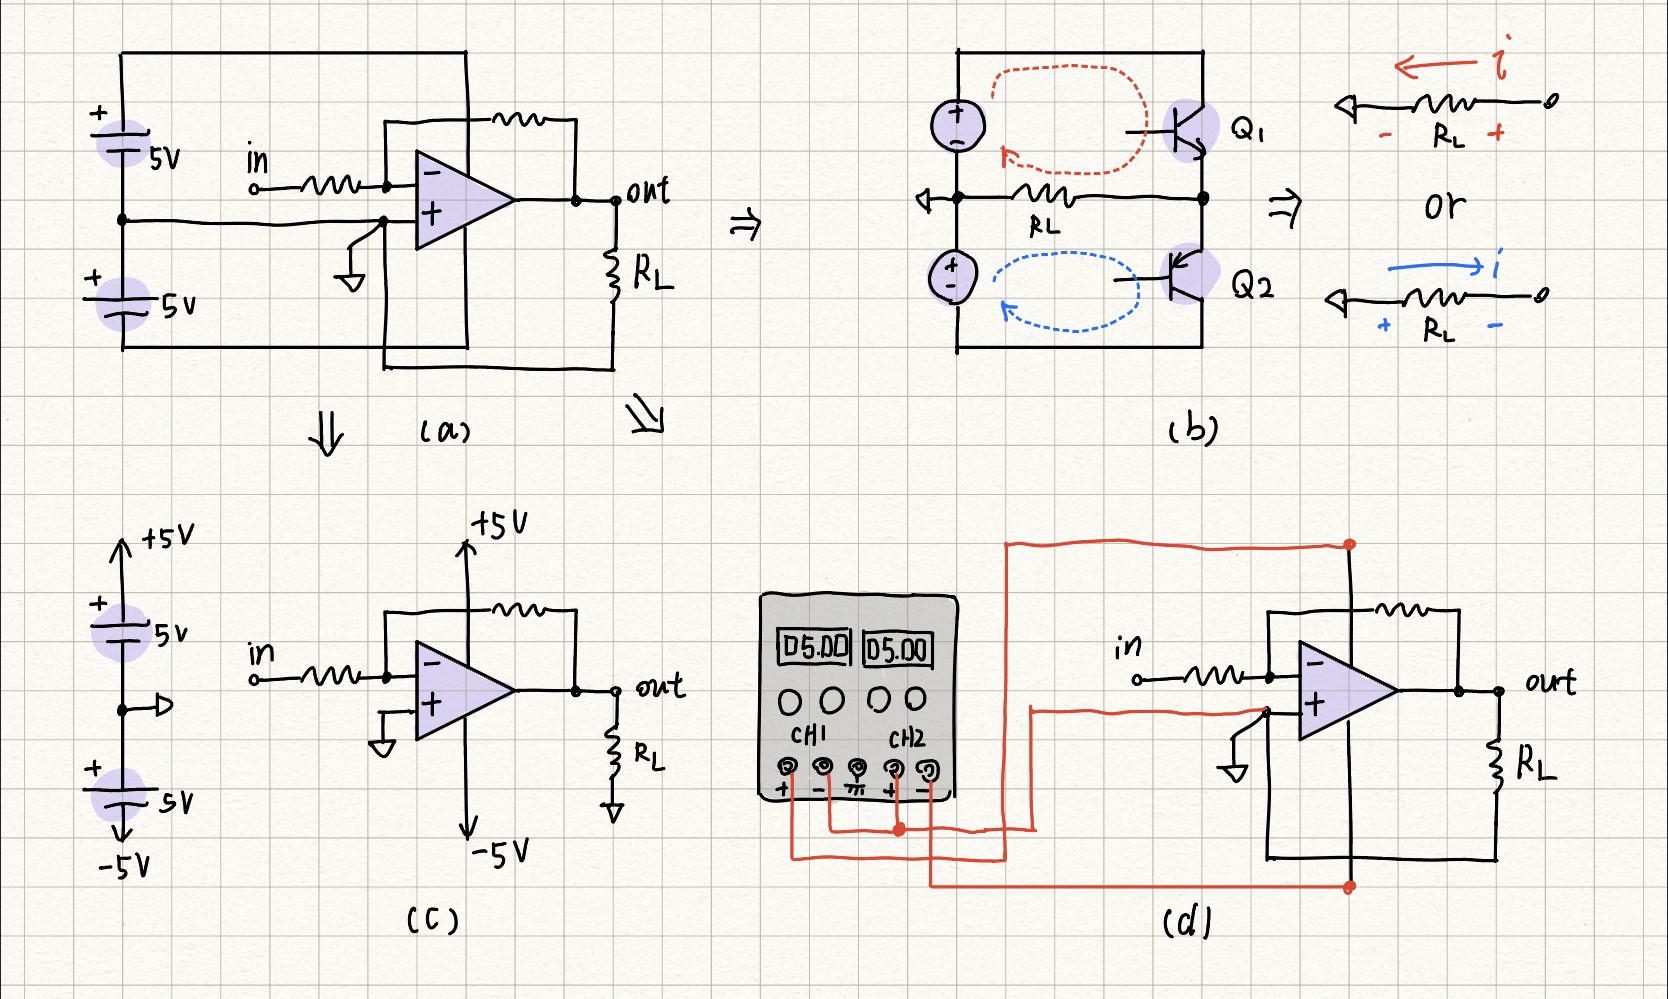 +
5V
in
−
+
out
+
5V
RL
(a)
+
−
Q1
RL
+
−
Q2
i
−
RL
+
or
i
+
RL
−
(b)
+5V
+
5V
+
5V
-5V
+5V
in
−
+
out
RL
-5V
(c)
05.00
05.00
CH1
CH2
+
−
+
−
in
−
+
out
RL
(d)